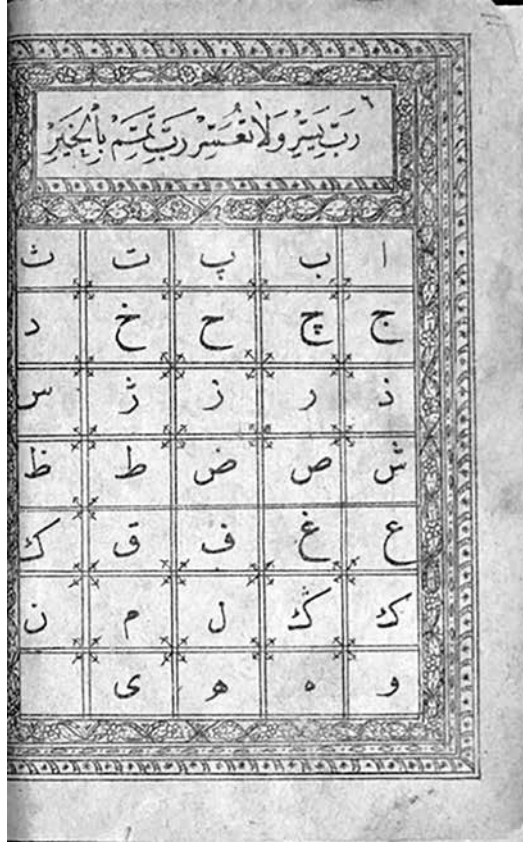 ٦
رَبِّ يَسِّرْ وَلَا تُعَسِّرْ رَبِّ تَمِّمْ بِالْخَيْرِ
ا ب پ ت ث
ج چ ح خ د
ذ ر ز ژ س
ش ص ض ط ظ
ع غ ف ق ك
ك ڭ ل م ن
و ه ه ى